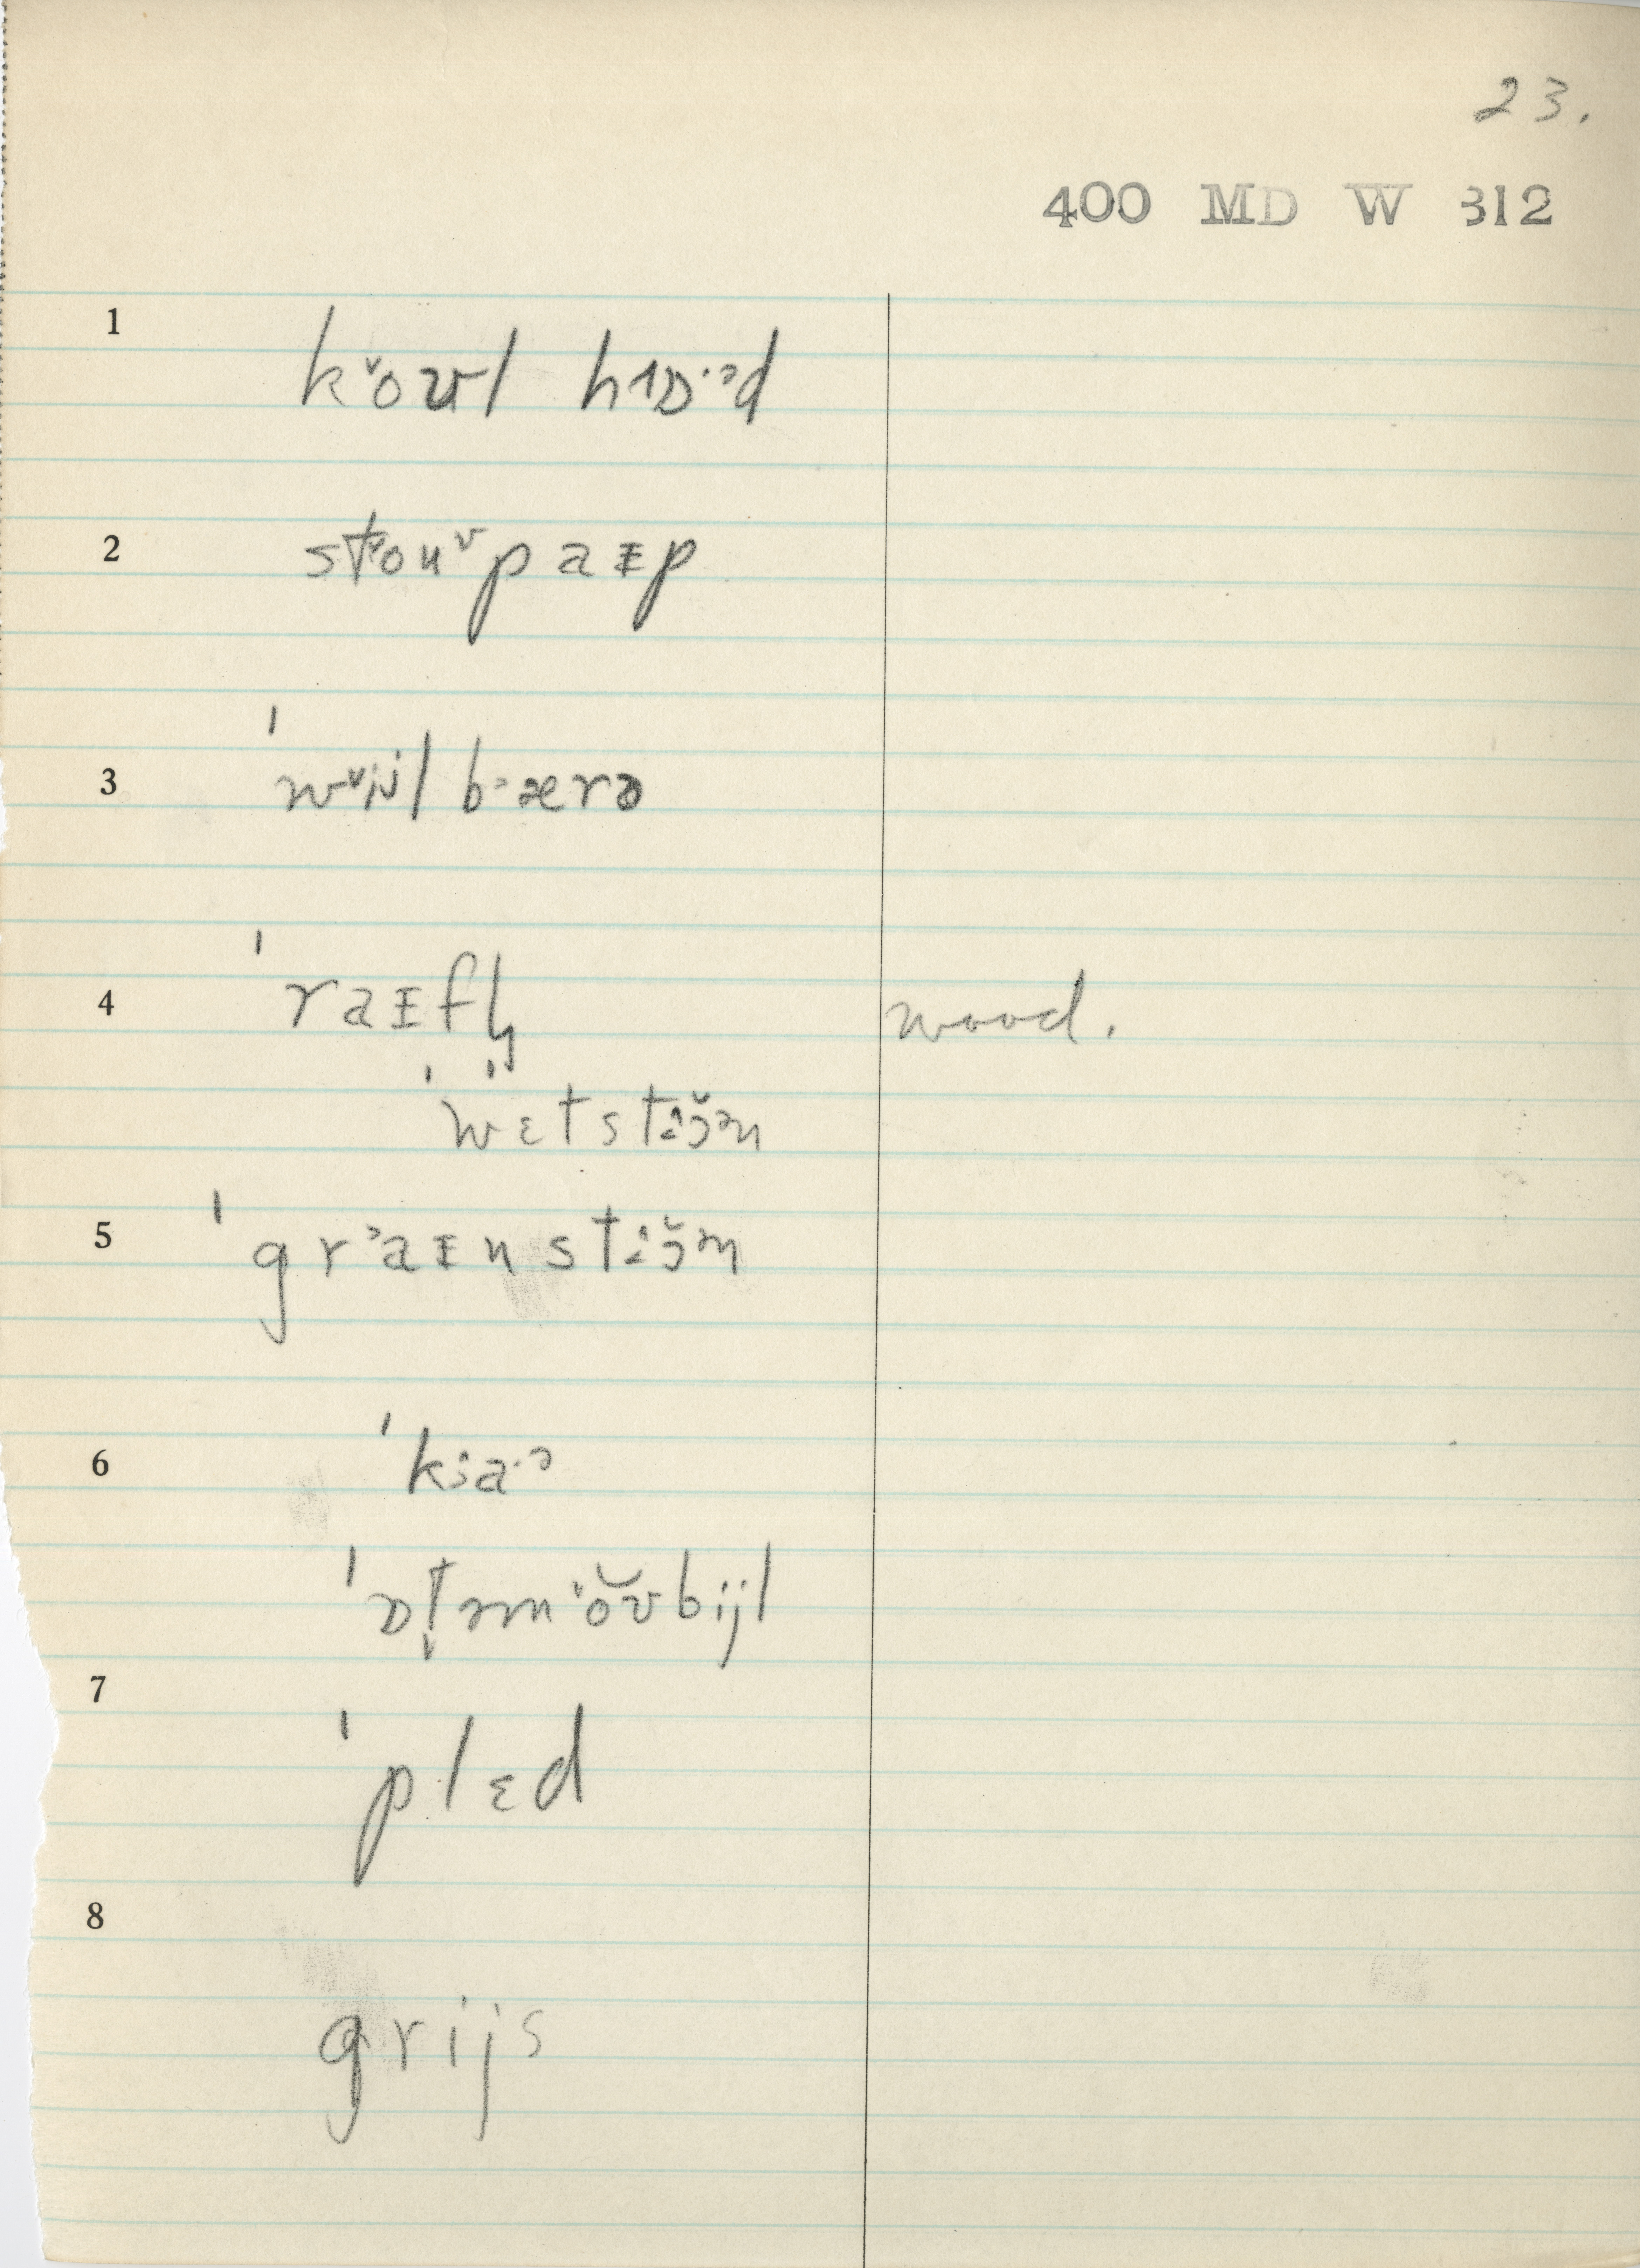 23.
400 MD W 312
1 k ̌oʊl hɒ·ᵊd
2 stoʊᵛpaɪp
3 ˈwᵛijlbærə
4 ˈraɪfl̩ wood.
ˈwɛtstɔ̆ən
5 ˈgrᵊaɪnstɔ̆ən
6 ˈkɜa·ᵊ
ˈɒt̬əmˈŏʊbijl
7 ˈplɛd
8 grijs